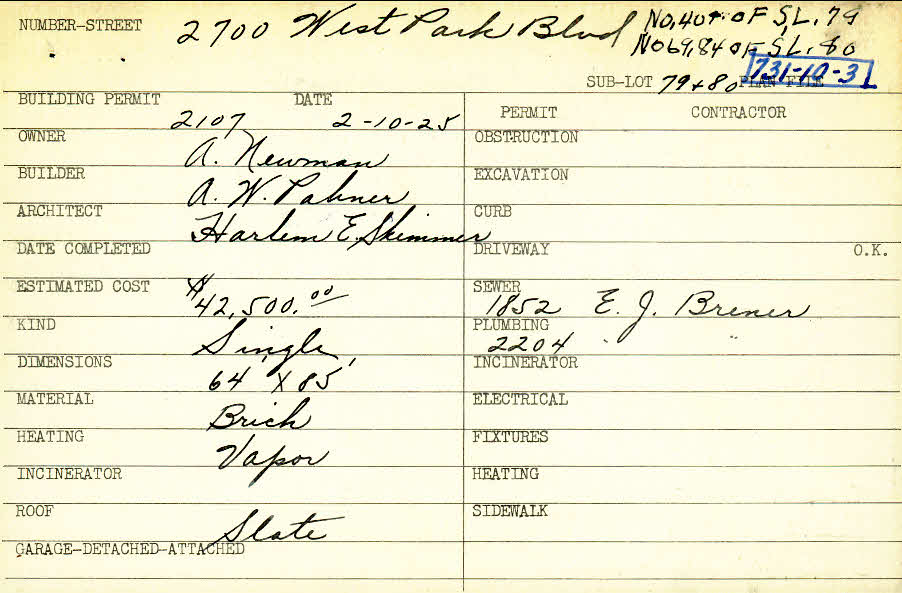 NUMBER-STREET 2700 West Park Blvd No. 40 ft. OF S.L. 79
No 69.84 OF S.L. 80
SUB-LOT 79+80 PLAN FILE 731-10-3
BUILDING PERMIT DATE PERMIT CONTRACTOR
2107 2-10-25
OWNER A. Newman OBSTRUCTION
BUILDER A. W. Palmer EXCAVATION
ARCHITECT Harlem E. Skimmer CURB
DATE COMPLETED DRIVEWAY O.K.
ESTIMATED COST $42,500.00 SEWER
1852 E. J. Brener
KIND Single PLUMBING
2204 " "
DIMENSIONS 64' X 85' INCINERATOR
MATERIAL Brick ELECTRICAL
HEATING Vapor FIXTURES
INCINERATOR HEATING
ROOF Slate SIDEWALK
GARAGE-DETACHED-ATTACHED